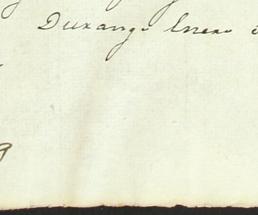 Durango Enero